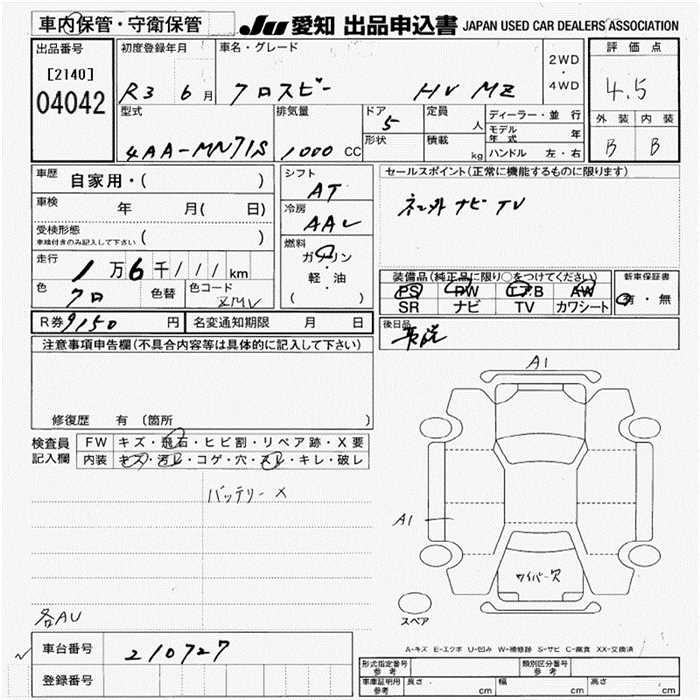 車内保管・守衛保管 JU 愛知 出品申込書 JAPAN USED CAR DEALERS ASSOCIATION
出品番号 初度登録年月 車名・グレード 2WD・4WD 評価点
[2140] R3 6月 クロスビー HV MZ 4.5
04042
型式 排気量 ドア 定員 ディーラー・並行 外装 内装
4AA-MN71S 1000 CC 5 人 モデル年式 年
形状 積載 kg ハンドル 左・右 B B
車歴 自家用・( ) シフト AT セールスポイント(正常に機能するものに限ります)
車検 年 月( 日) 冷房 AAC 純外 ナビ TV
受検形態 車検付きのみ記入して下さい ( )
燃料 ガソリン・軽・油 ( )
走行 1万6千111km 装備品(純正品に限り○をつけてください) 新車保証書
色 クロ 色替 色コード ZMV PS PW エアB AW 有・無
SR ナビ TV カワシート
R券 9150 円 名変通知期限 月 日 後日品
注意事項申告欄(不具合内容等は具体的に記入して下さい)
修復歴 有 (箇所 )
A1
検査員記入欄 FW キズ・飛石・ヒビ割・リペア跡・X要
内装 キズ・汚レ・コゲ・穴・スレ・キレ・破レ
バッテリー ×
A1
ワイパー穴
スペア
各AU
車台番号 210727
登録番号
A-キズ E-エクボ U-凹み W-補修跡 S-サビ C-腐食 XX-交換済
形式指定番号 参考 類別区分番号 参考
車庫証明用 参考 長さ cm 幅 cm 高さ cm